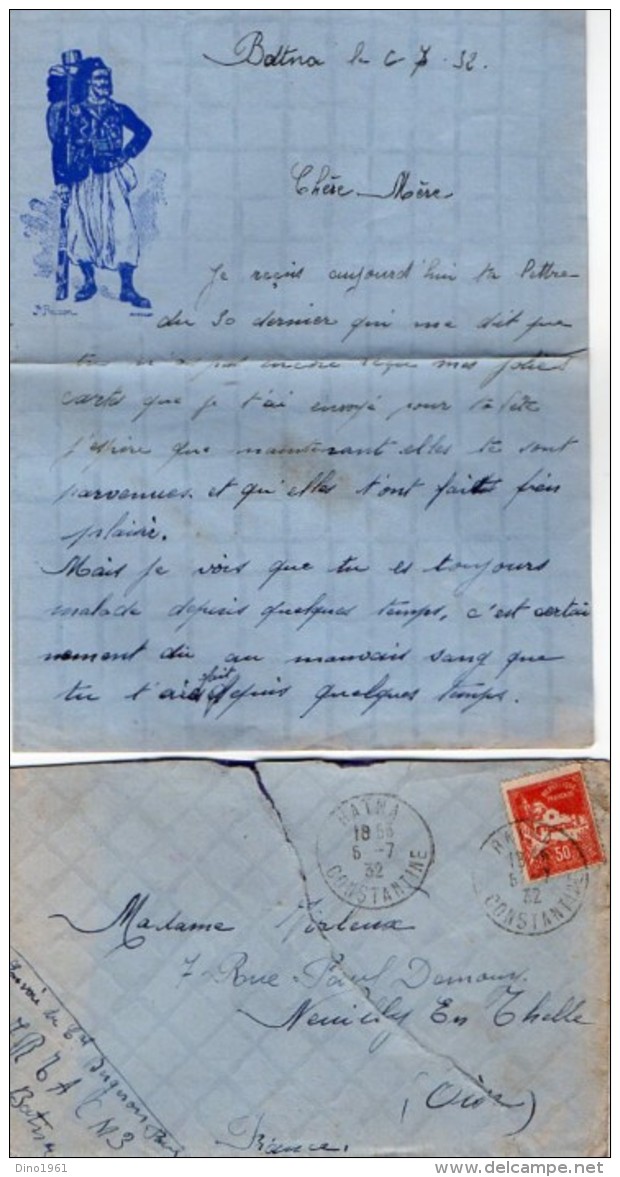 Batna le 6 7 - 32.
Chère Mère
Je reçois aujourd'hui ta lettre
du 30 dernier qui me dit que
tu n'a pas encore reçue mes jolies
carte que je t'ai envoyé pour ta fête
j'espère que maintenant elles te sont
parvenues et qu'elles t'ont fait bien
plaisir.
Mais je vois que tu es toujours
malade depuis quelques temps, c'est certai
nement dû au mauvais sang que
tu t'ais fait depuis quelques temps.
BATNA
18
6 -7
32
CONSTANTINE
50
32
CONSTANTINE
Madame
7 Rue Paul Doumer
Neuilly En Thelle
(Oise)
France.
Envoi de
Batna
Dino1961